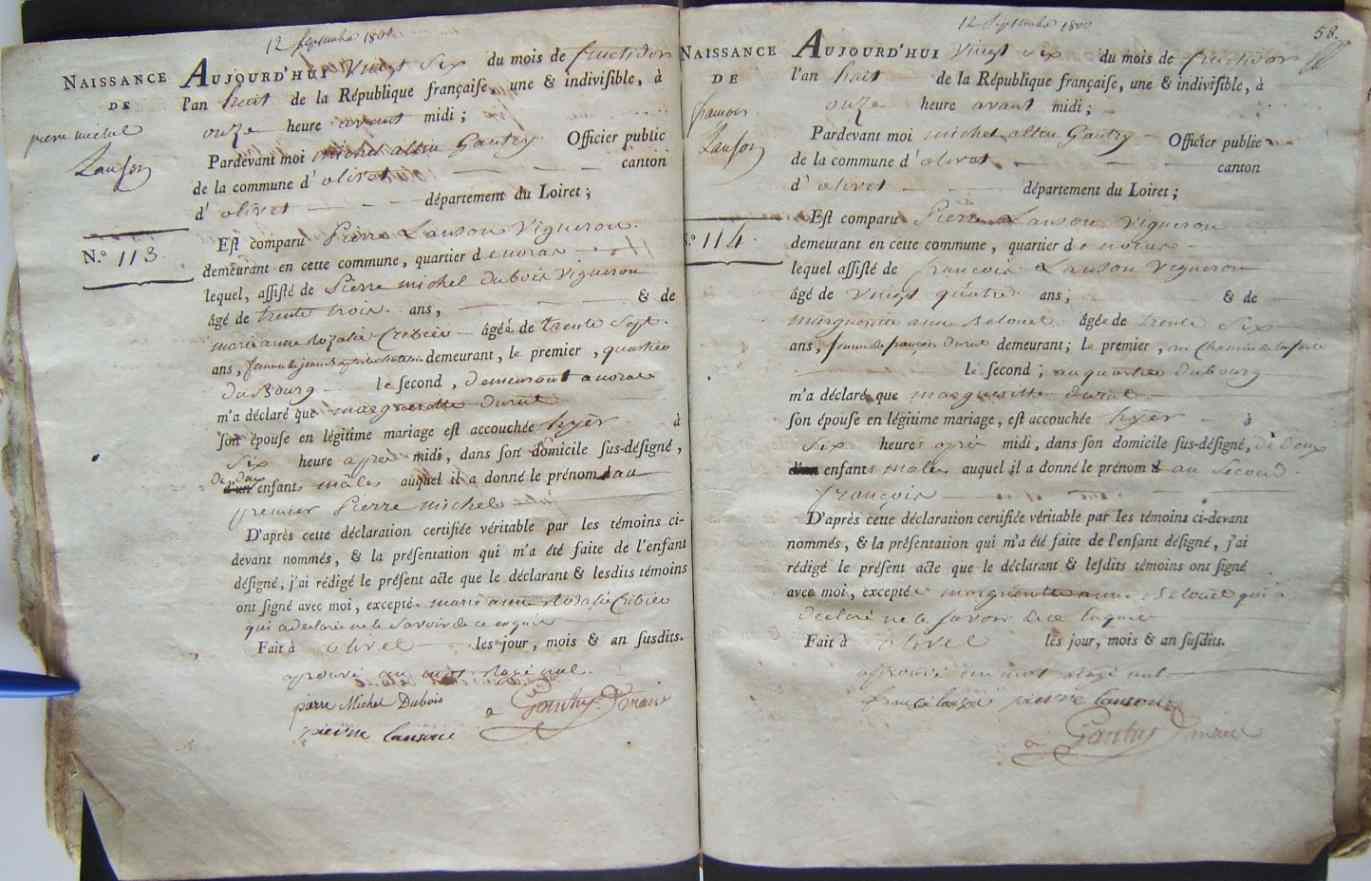 12 Septembre 1800
NAISSANCE
DE
pierre michel
Lauson
N.º 113
AUJOURD'HUI Vingt Six du mois de fructidor
l'an huit de la République française, une & indivisible, à
onze heure avant midi;
Pardevant moi michel altin Gautry Officier public
de la commune d'olivet canton
d'olivet département du Loiret;
Est comparu Pierre Lauson Vigneron
demeurant en cette commune, quartier de
lequel, assisté de Pierre michel dubois Vigneron
âgé de trente trois ans, & de
marie anne Rozalie Cribier âgée de trente Sept
ans, demeurant, le premier, quartier
du Bourg le second, demeurant a
m'a déclaré que margueritte durut
son épouse en légitime mariage est accouchée hyer à
Six heure après midi, dans son domicile sus-désigné,
de deux d'un enfants males auquel il a donné le prénom au
premier Pierre michel
D'après cette déclaration certifiée véritable par les témoins ci-
devant nommés, & la présentation qui m'a été faite de l'enfant
désigné, j'ai rédigé le présent acte que le déclarant & lesdits témoins
ont signé avec moi, excepté marie anne Rozalie Cribier
qui a declaré ne le Savoir de ce enquis
Fait à olivet les jour, mois & an susdits.
aprouvé un mot rayé nul
pierre Michel Dubois
Gautry maire
pierre lauson
12 Septembre 1800
58.
NAISSANCE
DE
françois
Lauson
N.º 114
AUJOURD'HUI Vingt Six du mois de fructidor
l'an huit de la République française, une & indivisible, à
onze heure avant midi;
Pardevant moi michel altin Gautry Officier public
de la commune d'olivet canton
d'olivet département du Loiret;
Est comparu Pierre Lauson Vigneron
demeurant en cette commune, quartier de
lequel assisté de françois Lauson Vigneron
âgé de Vingt quatre ans, & de
margueritte anne âgée de trente Six
ans, femme de françois durut demeurant; le premier,
le second; au quartier du bourg
m'a déclaré que margueritte durut
son épouse en légitime mariage, est accouchée hyer à
Six heures après midi, dans son domicile sus-désigné, de deux
d'un enfants males auquel il a donné le prénom au Second
françois
D'après cette déclaration certifiée véritable par les témoins ci-devant
nommés, & la présentation qui m'a été faite de l'enfant désigné, j'ai
rédigé le présent acte que le déclarant & lesdits témoins ont signé
avec moi, excepté margueritte anne qui a
declaré ne le Savoir de ce enquis
Fait à olivet les jour, mois & an susdits.
approuvé un mot rayé nul
pierre lauson
Gautry maire